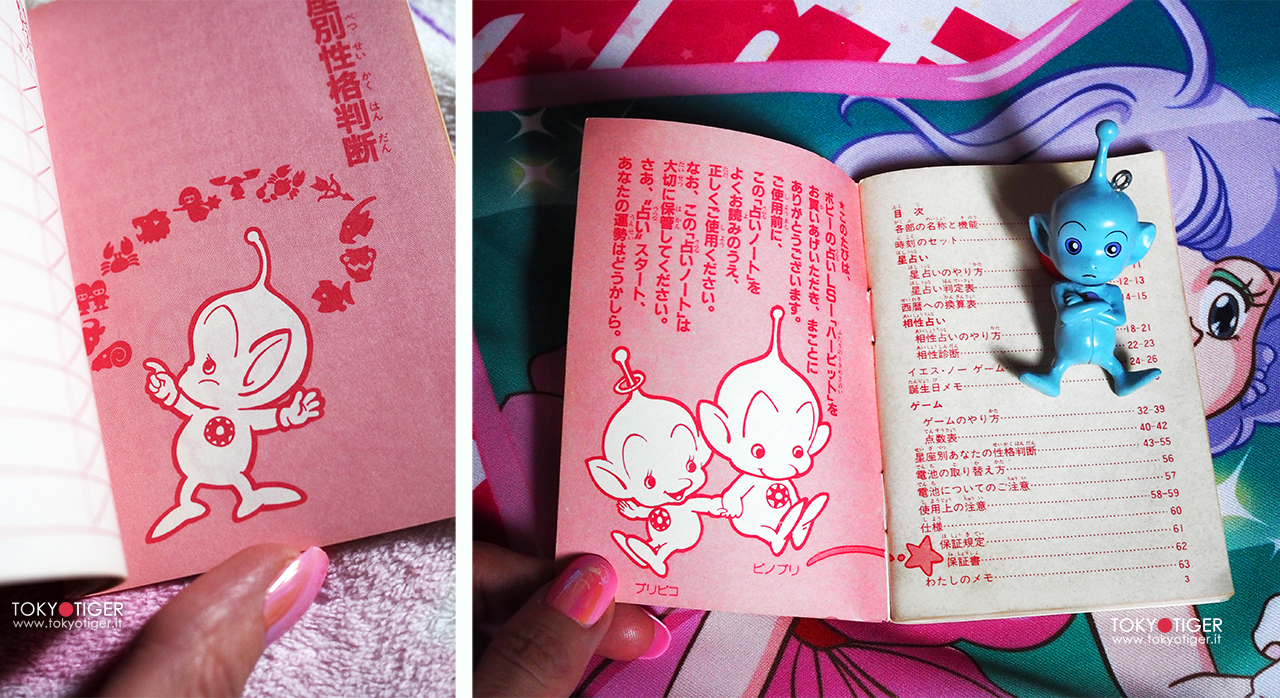 座別性格判断
べつ せい かく はん だん
TOKYOTIGER
www.tokyotiger.it
★このたびは、
ポピーの占いLSI "ハービット"を
お買いあげいただき、まことに
ありがとうございます。
ご使用前に、
この「占いノート」を
よくお読みのうえ、
正しくご使用ください。
なお、この「占いノート」は
大切に保管してください。
さあ、占い スタート、
あなたの運勢はどうかしら。
プリピコ
ピノプリ
目次
各部の名称と機能
時刻のセット
星占い
星占いのやり方 11
星占い判定表 12-13
西暦への換算表 14-15
相性占い
相性占いのやり方 18-21
相性診断 22-23
イエス・ノー ゲーム 24-26
誕生日メモ
ゲーム
ゲームのやり方 32-39
点数表 40-42
星座別あなたの性格判断 43-55
電池の取り替え方 56
電池についてのご注意 57
使用上の注意 58-59
仕様 60
保証規定 61
保証書 62
わたしのメモ 63
3
TOKYOTIGER
www.tokyotiger.it